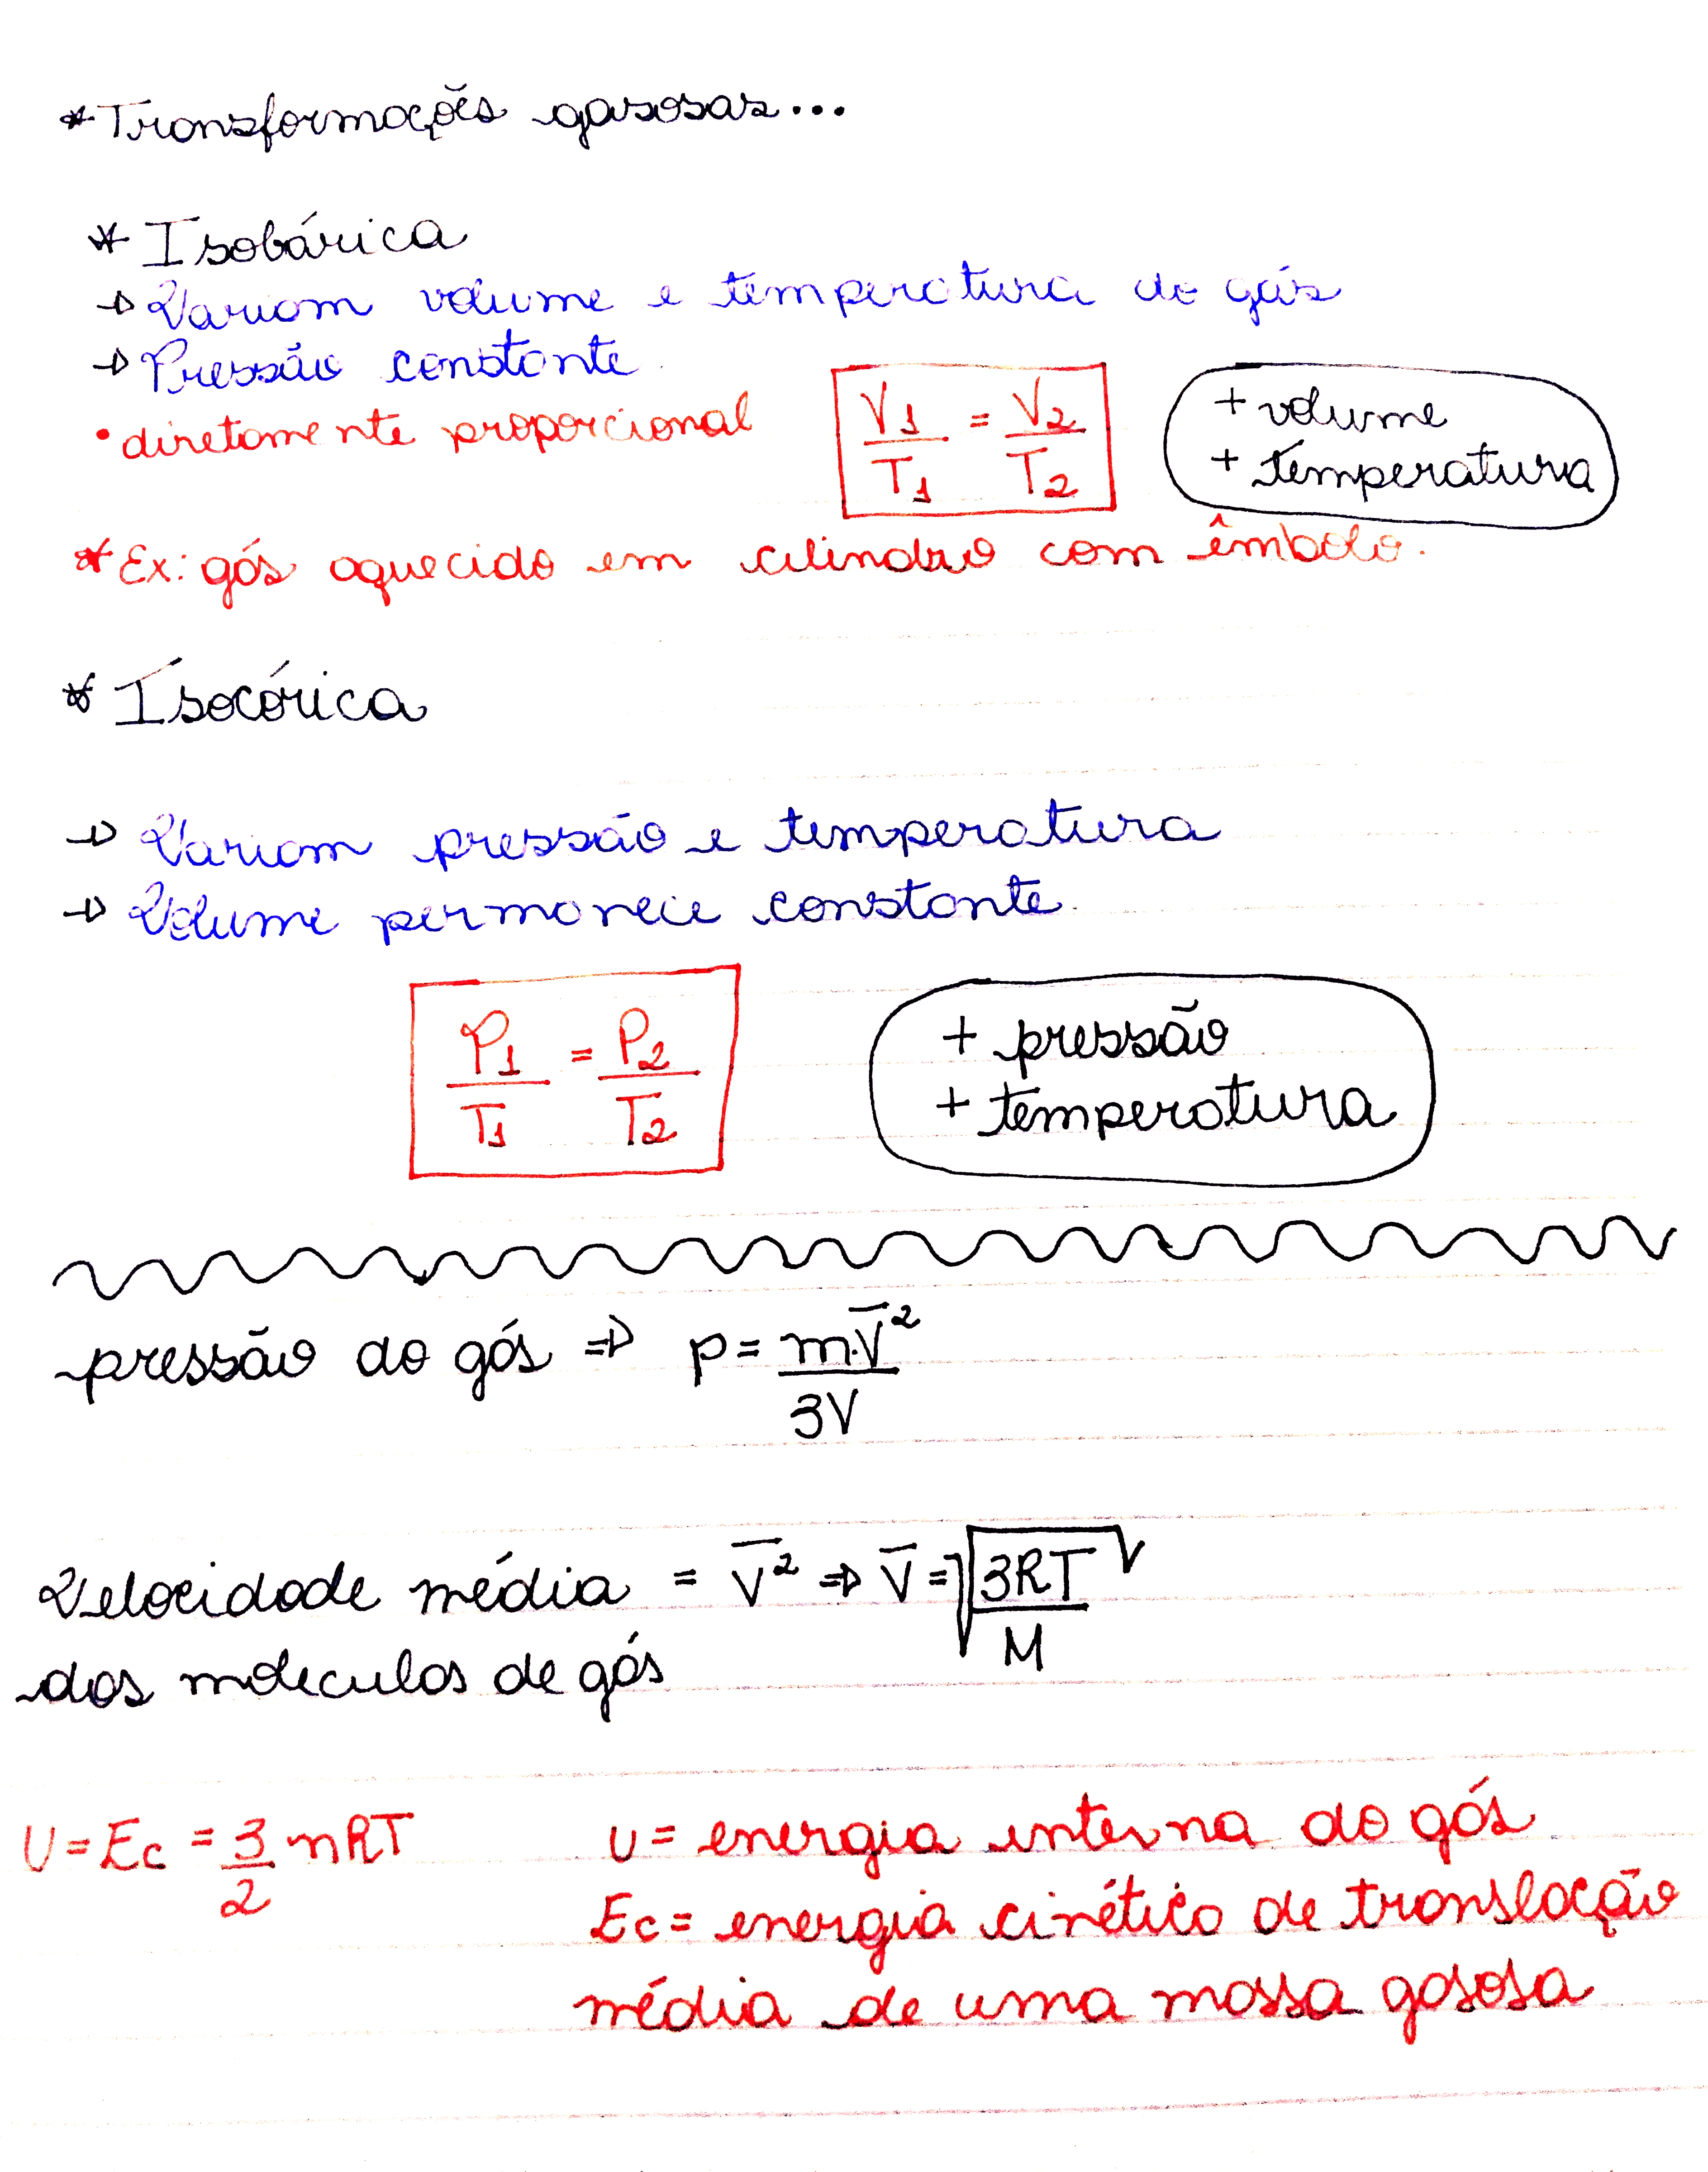 *Transformações gasosas...
* Isobárica
→ Variam volume e temperatura do gás
→ Pressão constante
• diretamente proporcional
V1/T1 = V2/T2
+ volume
+ temperatura
* Ex: gás aquecido em cilindro com êmbolo.
* Isocórica
→ Variam pressão e temperatura
→ Volume permanece constante.
P1/T1 = P2/T2
+ pressão
+ temperatura
pressão do gás ⇒ p = m.V̅²/3V
Velocidade média = V̅² ⇒ V̅ = √3RT/M
das moleculas de gás
U = Ec = 3/2 nRT
U = energia interna do gás
Ec = energia cinética de translação
média de uma massa gasosa